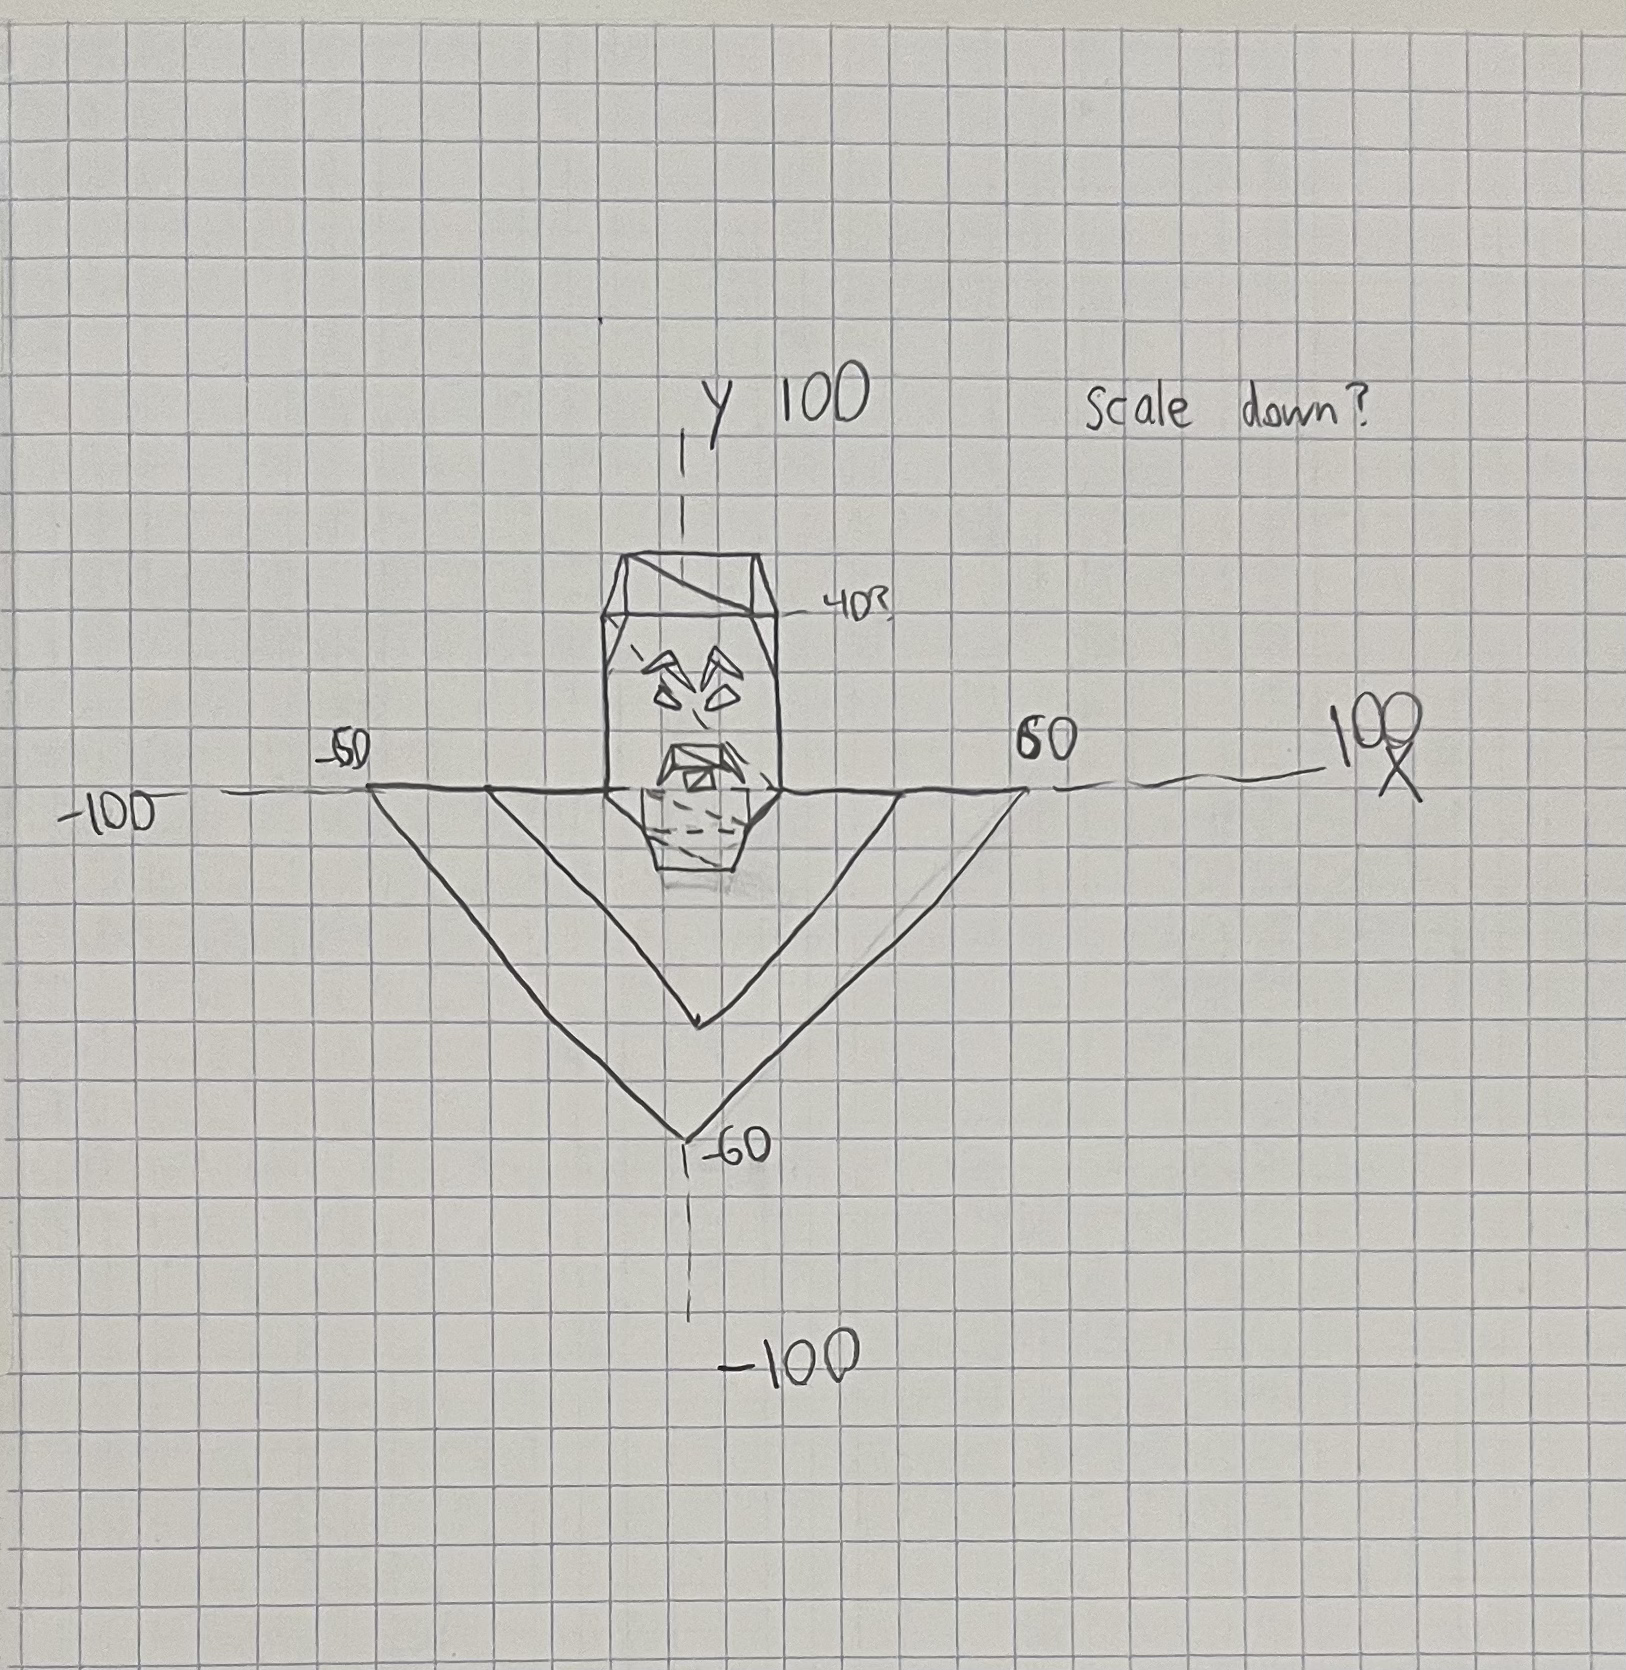 y 100
scale down?
40?
-60
60
100
x
-100
-60
-100